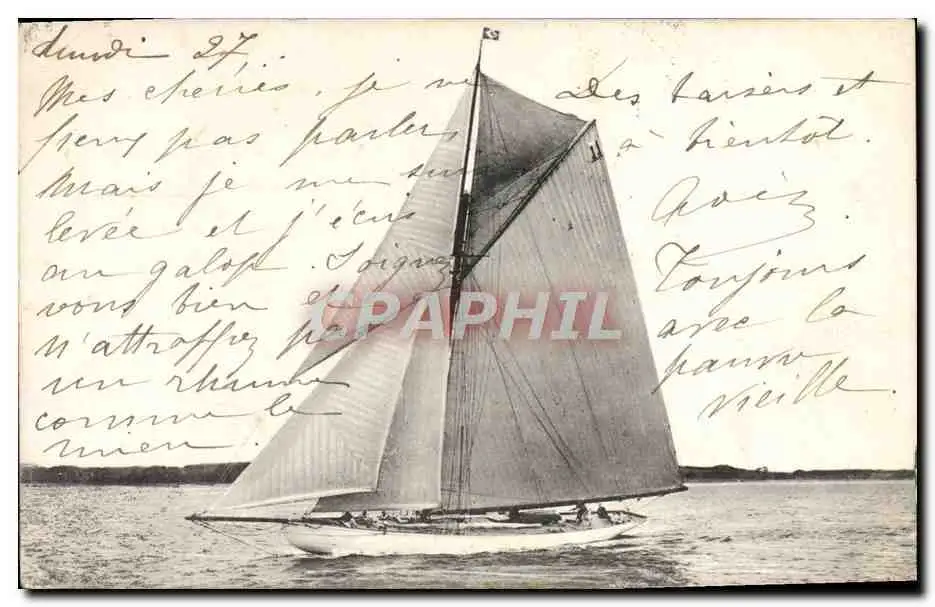 Lundi 27.
Mes chéries, je ne
peux pas parler
Mais je me suis
levée et j'écris
au galop. Soignez
vous bien et
n'attraffez pas
un rhume
comme le
mien.
Des baisers et
à bientôt.
Toujours
avec la
pauvre
vieille.
11
CPAPHIL